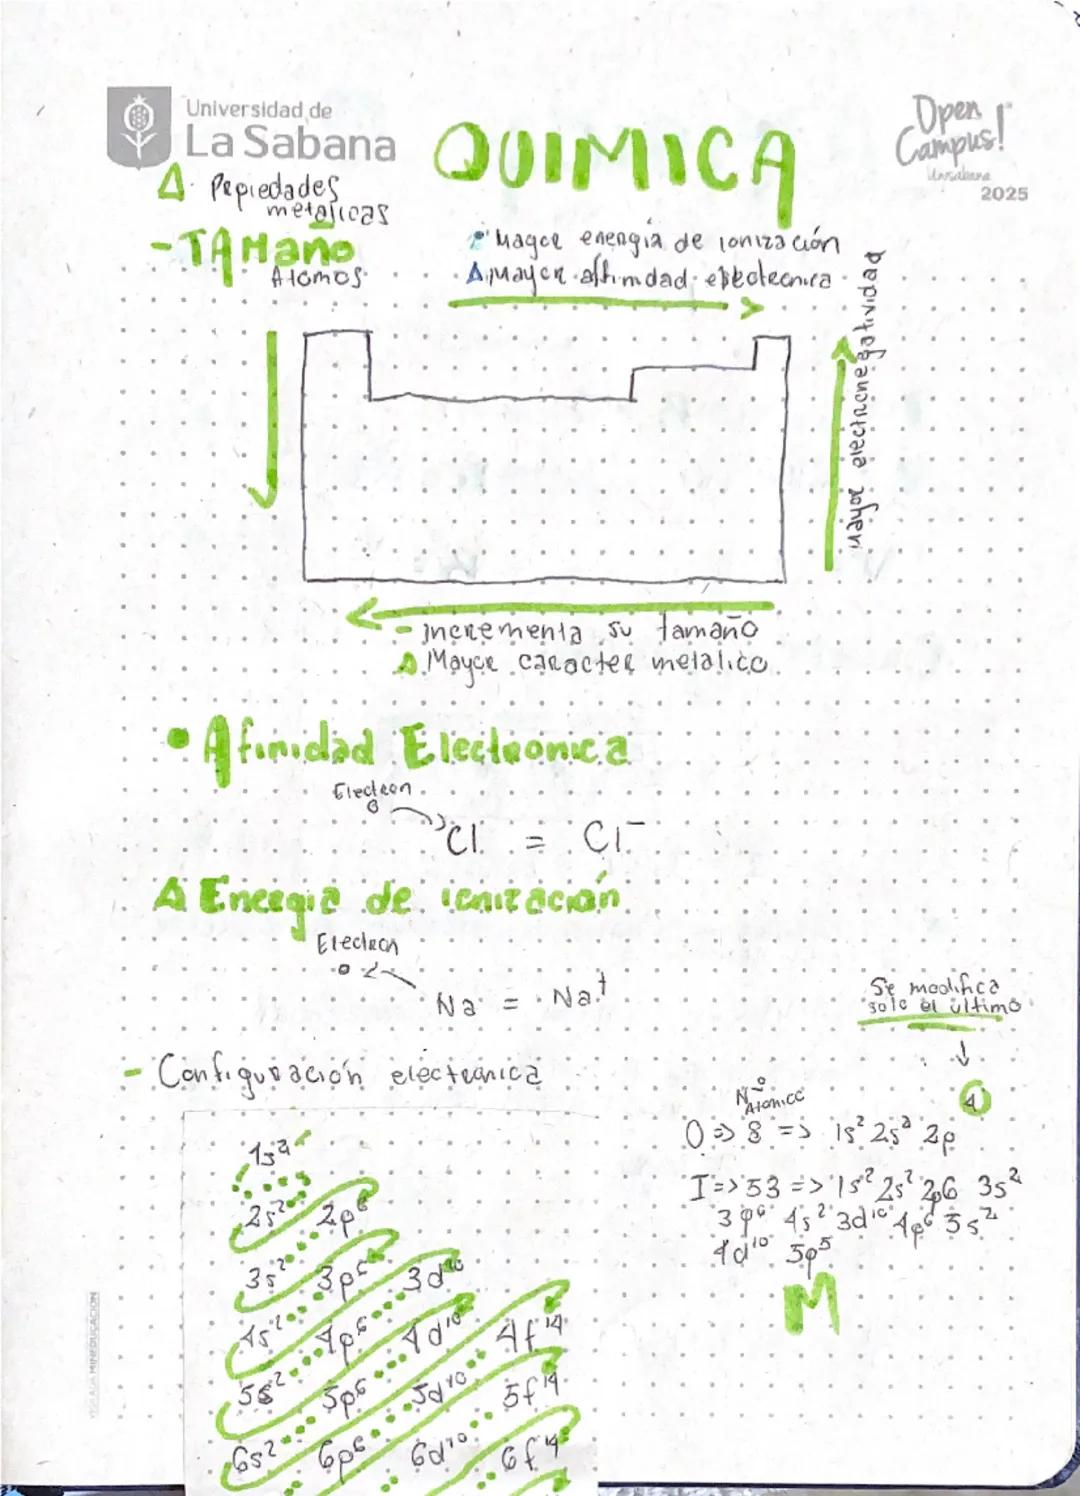 Universidad de
La Sabana
QUIMICA
Open
Campus!
Unisabana
2025
Δ Pepiedades
metalicas
- TAMaño
Atomos
Mayor energia de ionización
Δ Mayor afinidad
mayor electronegatividad
- incrementa su tamaño
Δ Mayor caracter metalico
• Afinidad Electronica
Electron
Cl = Cl⁻
Δ Energia de ionización
Electron
Na = Na⁺
- Configuración electronica
Se modifica
solo el ultimo
Nº
Atomico
4
O => 8 => 1s² 2s² 2p
I => 53 => 1s² 2s² 2p6 3s²
3p⁶ 4s² 3d¹⁰ 4p⁶ 5s²
4d¹⁰ 5p⁵
M
1s²
2s² 2p⁶
3s² 3p⁶ 3d¹⁰
4s² 4p⁶ 4d¹⁰ 4f¹⁴
5s² 5p⁶ 5d¹⁰ 5f¹⁴
6s² 6p⁶ 6d¹⁰ 6f¹⁴